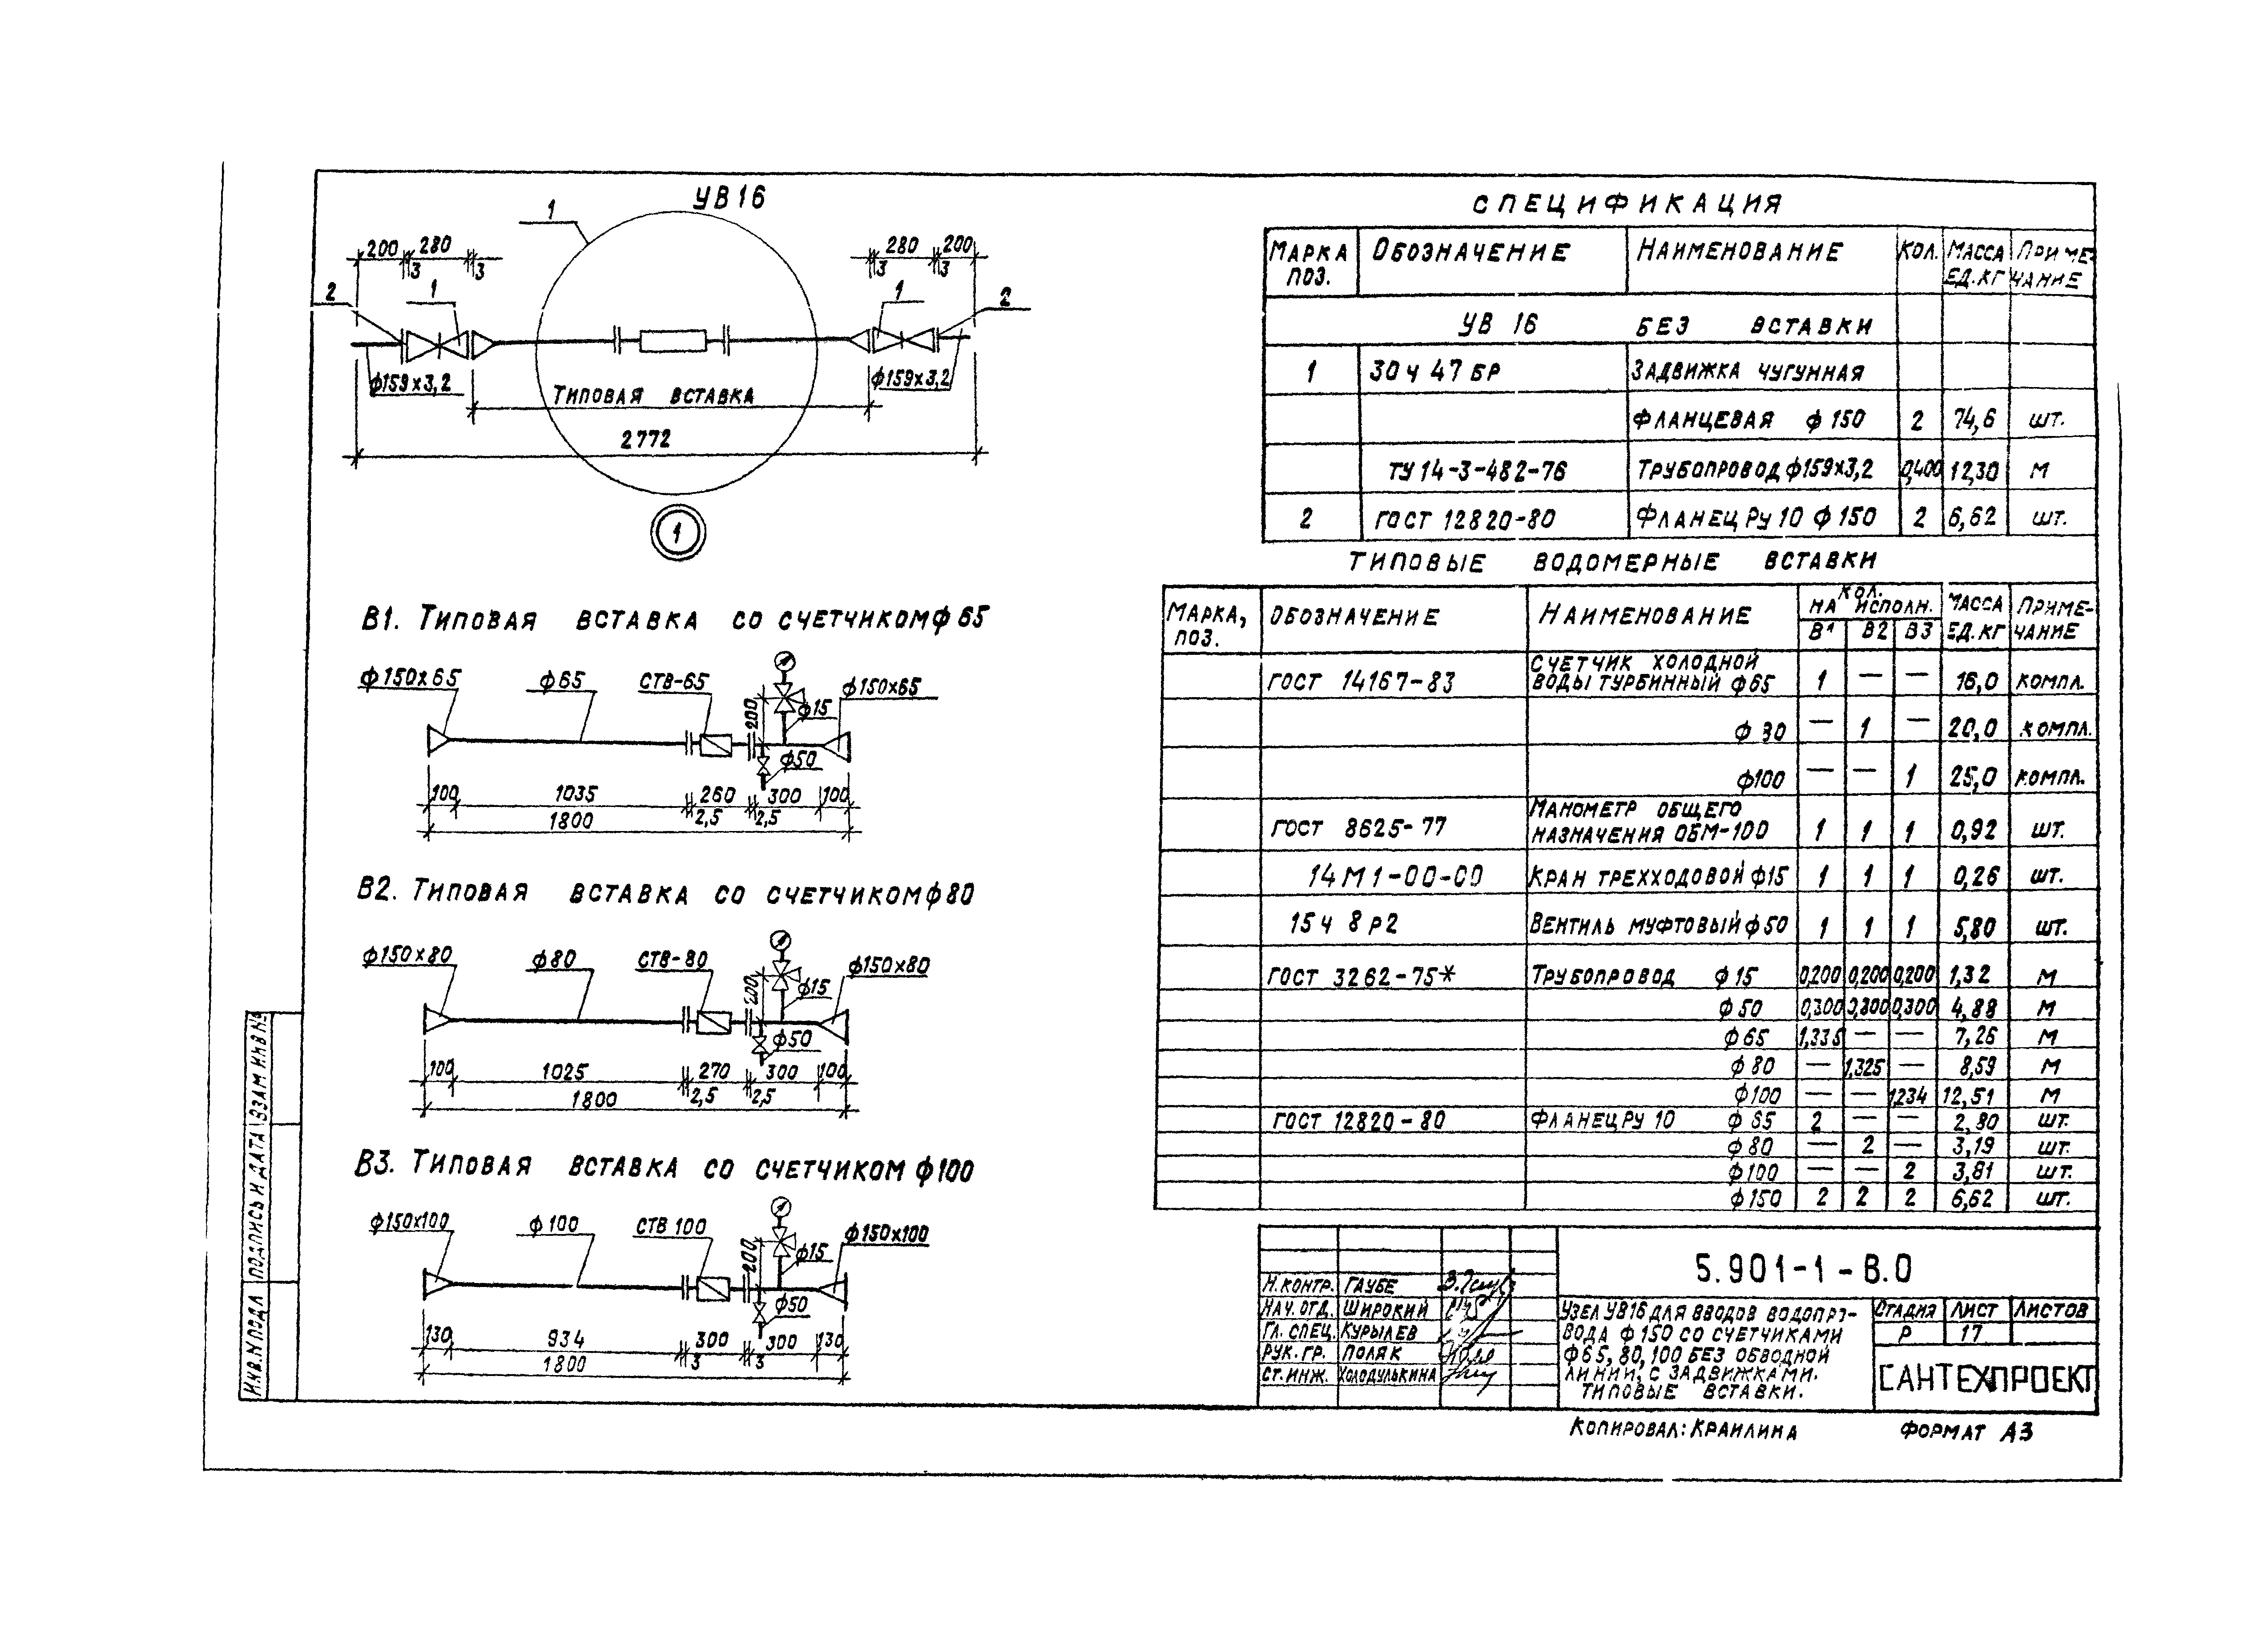 УВ 16
1
200 280 280 200
3 3 3 3
2 1 1 2
ф159х3,2 ф159х3,2
ТИПОВАЯ ВСТАВКА
2772
1
В1. ТИПОВАЯ ВСТАВКА СО СЧЕТЧИКОМ ф 65
ф150х65 ф65 СТВ-65 ф150х65
200 ф15
ф50
100 1035 260 300 100
2,5 2,5
1800
В2. ТИПОВАЯ ВСТАВКА СО СЧЕТЧИКОМ ф80
ф150х80 ф80 СТВ-80 ф150х80
200 ф15
ф50
100 1025 270 300 100
2,5 2,5
1800
В3. ТИПОВАЯ ВСТАВКА СО СЧЕТЧИКОМ ф100
ф150х100 ф100 СТВ 100 ф150х100
200 ф15
ф50
130 934 300 300 130
3 3
1800
СПЕЦИФИКАЦИЯ
МАРКА ПОЗ. ОБОЗНАЧЕНИЕ НАИМЕНОВАНИЕ КОЛ. МАССА ЕД.КГ ПРИМЕЧАНИЕ
УВ 16 БЕЗ ВСТАВКИ
1 30 ч 47 БР ЗАДВИЖКА ЧУГУННАЯ
ФЛАНЦЕВАЯ ф 150 2 74,6 ШТ.
ТУ 14-3-482-76 ТРУБОПРОВОД ф159х3,2 0,400 12,30 М
2 ГОСТ 12820-80 ФЛАНЕЦ РУ 10 ф 150 2 6,62 ШТ.
ТИПОВЫЕ ВОДОМЕРНЫЕ ВСТАВКИ
МАРКА, ПОЗ. ОБОЗНАЧЕНИЕ НАИМЕНОВАНИЕ КОЛ. НА ИСПОЛН. МАССА ЕД.КГ ПРИМЕ-ЧАНИЕ
В1 В2 В3
СЧЕТЧИК ХОЛОДНОЙ
ГОСТ 14167-83 ВОДЫ ТУРБИННЫЙ ф65 1 — — 16,0 КОМПЛ.
ф 80 — 1 — 20,0 КОМПЛ.
ф100 — — 1 25,0 КОМПЛ.
МАНОМЕТР ОБЩЕГО
ГОСТ 8625-77 НАЗНАЧЕНИЯ ОБМ-100 1 1 1 0,92 ШТ.
14М1-00-00 КРАН ТРЕХХОДОВОЙ ф15 1 1 1 0,26 ШТ.
15 ч 8 Р2 ВЕНТИЛЬ МУФТОВЫЙ ф50 1 1 1 5,80 ШТ.
ГОСТ 3262-75* ТРУБОПРОВОД ф 15 0,200 0,200 0,200 1,32 М
ф 50 0,300 0,300 0,300 4,88 М
ф 65 1,335 — — 7,26 М
ф 80 — 1,325 — 8,59 М
ф100 — — 1234 12,51 М
ГОСТ 12820-80 ФЛАНЕЦ РУ 10 ф 65 2 — — 2,80 ШТ.
ф 80 — 2 — 3,19 ШТ.
ф100 — — 2 3,81 ШТ.
ф150 2 2 2 6,62 ШТ.
5.901-1-В.0
Н.КОНТР. ГАУБЕ
НАЧ.ОТД. ШИРОКИЙ
ГЛ. СПЕЦ. КУРЫЛЕВ
РУК. ГР. ПОЛЯК
СТ.ИНЖ. ХОЛОДУЛЬКИНА
УЗЕЛ УВ16 ДЛЯ ВВОДОВ ВОДОПРО-
ВОДА ф 150 СО СЧЕТЧИКАМИ
ф65, 80, 100 БЕЗ ОБВОДНОЙ
ЛИНИИ, С ЗАДВИЖКАМИ.
ТИПОВЫЕ ВСТАВКИ.
СТАДИЯ ЛИСТ ЛИСТОВ
Р 17
САНТЕХПРОЕКТ
КОПИРОВАЛ: КРАИЛИНА ФОРМАТ А3
ИНВ.N ПОДЛ ПОДПИСЬ И ДАТА ВЗАМ ИНВ N